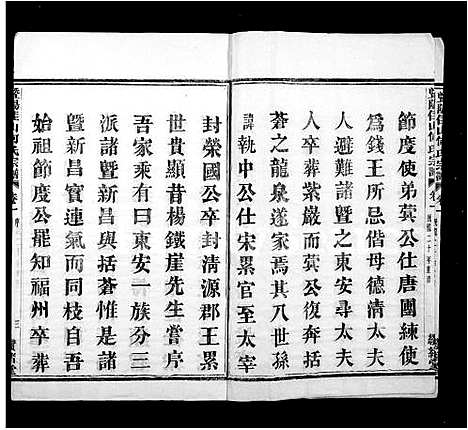 節度使弟蓂公仕唐團練使
為錢王所忌偕母德清太夫
人卒葬諸暨之東安尋太夫
人卒葬紫巖蓂公復奔括
蒼之龍泉遂家焉其八世孫
諱執中公仕宋累官至太宰
封榮國公卒封清源郡王累
世貴顯昔楊鐵崖先生嘗序
吾家乘有曰東安一族分三
派諸暨新昌與括蒼惟是諸
暨新昌實連氣而同枝自吾
始祖節度公罷知福州卒葬
暨陽佳山何氏宗譜 卷一 序 三